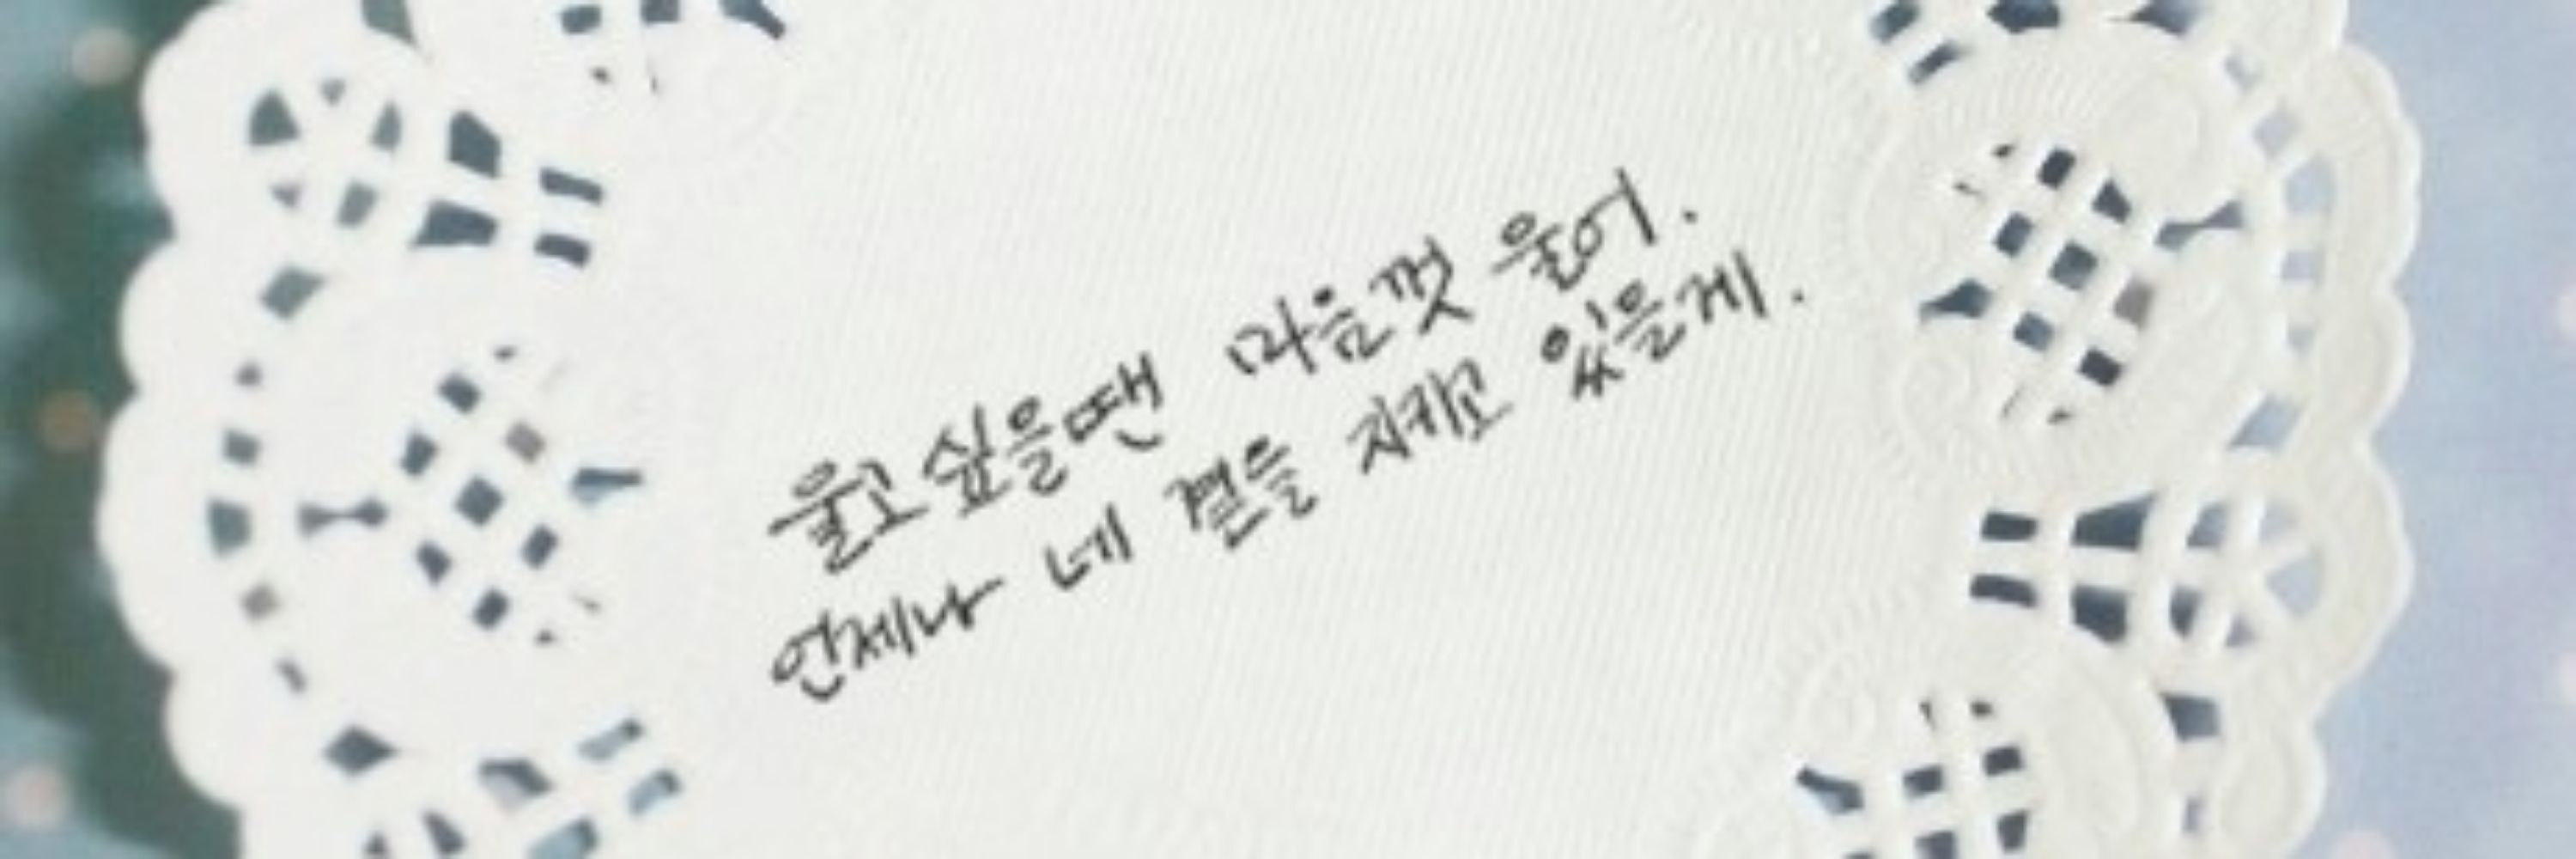 울고싶을땐 마음껏 울어.
언제나 네 곁을 지키고 있을게.